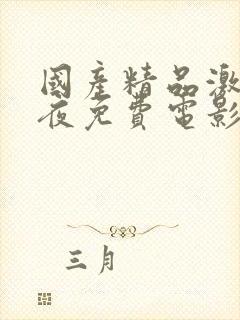 國產精品激
夜免費電影
三月